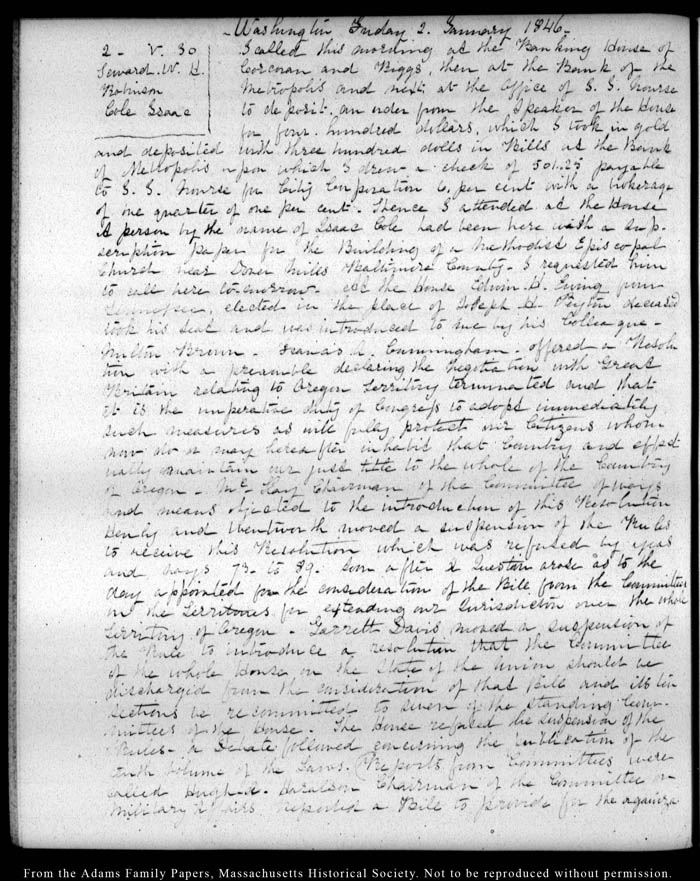 Washington Friday 2. January 1846.
2 - V. 30
Seward. W. H.
Robinson
Cole Isaac
I called this morning at the Banking House of
Corcoran and Riggs, then at the Bank of the
Metropolis and next at the Office of S. S.
to deposit an order from the Speaker of the House
for four hundred dollars, which I took in gold
and deposited with three hundred dolls in Bills at the Bank
of Metropolis upon which I drew a check of 501.25 payable
to S. S. for City Corporation 6, per cent with a brokerage
of one quarter of one per cent. Thence I attended at the House
A person by the name of Isaac Cole had been here with a sub-
scription paper for the Building of a Methodist Episcopal
Church near Dover Mills Baltimore County - I requested him
to call here to-morrow - At the House Edwin H. Ewing from
Tennessee, elected in the place of Joseph H. Peyton deceased
took his Seat and was introduced to me by his Colleague -
Milton Brown. Francis A. Cunningham offered a Resolu
tion with a preamble declaring the Negotiation with Great
Britain relating to Oregon Territory terminated and that
it is the imperative duty of Congress to adopt immediately
such measures as will fully protect our Citizens whom
now do or may hereafter inhabit that Country and effect
ually maintain our just title to the whole of the Country
of Oregon - Mc.Kay Chairman of the Committee of ways
and means objected to the introduction of this Resolution
Henly and Wentworth moved a suspension of the Rules
to receive this Resolution which was refused by yeas
and nays 73. to 89. Soon after a Question arose as to the
day appointed for the consideration of the Bill from the Committee
on the Territories for extending our Jurisdiction over the whole
Territory of Oregon - Garrett Davis moved a suspension of
the Rule to introduce a resolution that the Committee
of the whole House on the State of the Union should be
discharged from the consideration of that Bill and its ten
sections be recommitted to seven of the standing Com-
mittees of the House. The House refused the suspension of the
Rules - A Debate followed concerning the publication of the
tenth volume of the Laws. Reports from Committees were
called Hugh A. Haralson Chairman of the Committee on
Military Affairs reported a Bill to provide for the organiza
From the Adams Family Papers, Massachusetts Historical Society. Not to be reproduced without permission.